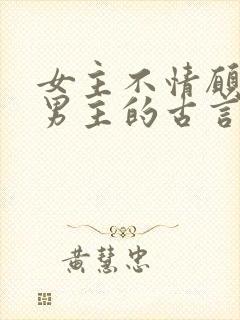 女主不情願
男主的古言
黃慧忠